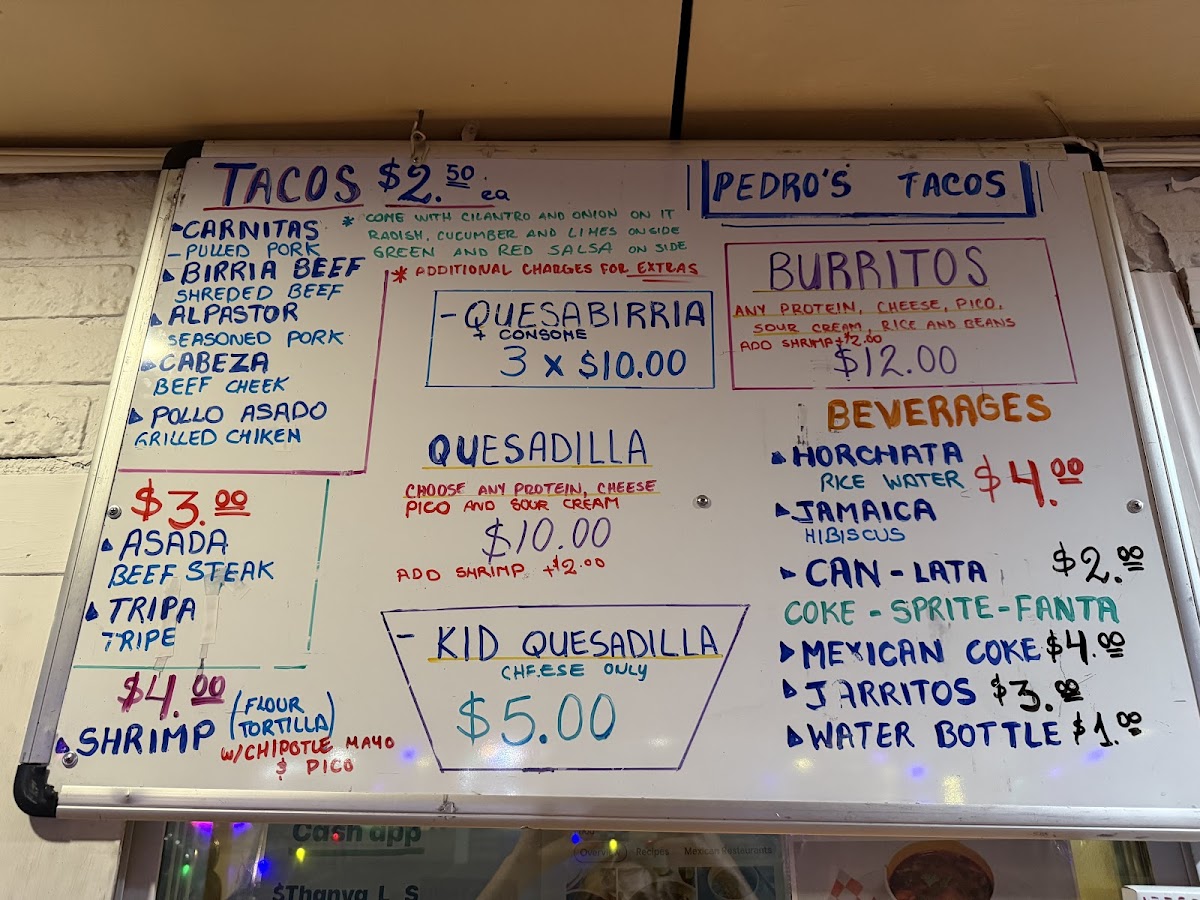 TACOS $2.50 ea
CARNITAS
- PULLED PORK
BIRRIA BEEF
SHREDED BEEF
ALPASTOR
SEASONED PORK
CABEZA
BEEF CHEEK
POLLO ASADO
GRILLED CHIKEN
* COME WITH CILANTRO AND ONION ON IT
RADISH, CUCUMBER AND LIMES ON SIDE
GREEN AND RED SALSA ON SIDE
* ADDITIONAL CHARGES FOR EXTRAS
$3.00
ASADA
BEEF STEAK
TRIPA
TRIPE
$4.00
SHRIMP (FLOUR
TORTILLA)
W/CHIPOTLE MAYO
$ PICO
- QUESABIRRIA
+ CONSOME
3 x $10.00
QUESADILLA
CHOOSE ANY PROTEIN, CHEESE
PICO AND SOUR CREAM
$10.00
ADD SHRIMP +$2.00
- KID QUESADILLA
CHEESE ONLY
$5.00
PEDRO'S TACOS
BURRITOS
ANY PROTEIN, CHEESE, PICO,
SOUR CREAM, RICE AND BEANS
ADD SHRIMP +$2.00
$12.00
BEVERAGES
HORCHATA
RICE WATER $4.00
JAMAICA
HIBISCUS
CAN - LATA $2.00
COKE - SPRITE - FANTA
MEXICAN COKE $4.00
JARRITOS $3.00
WATER BOTTLE $1.00
Cash app
$Thanya L S
Overview Recipes Mexican Restaurants